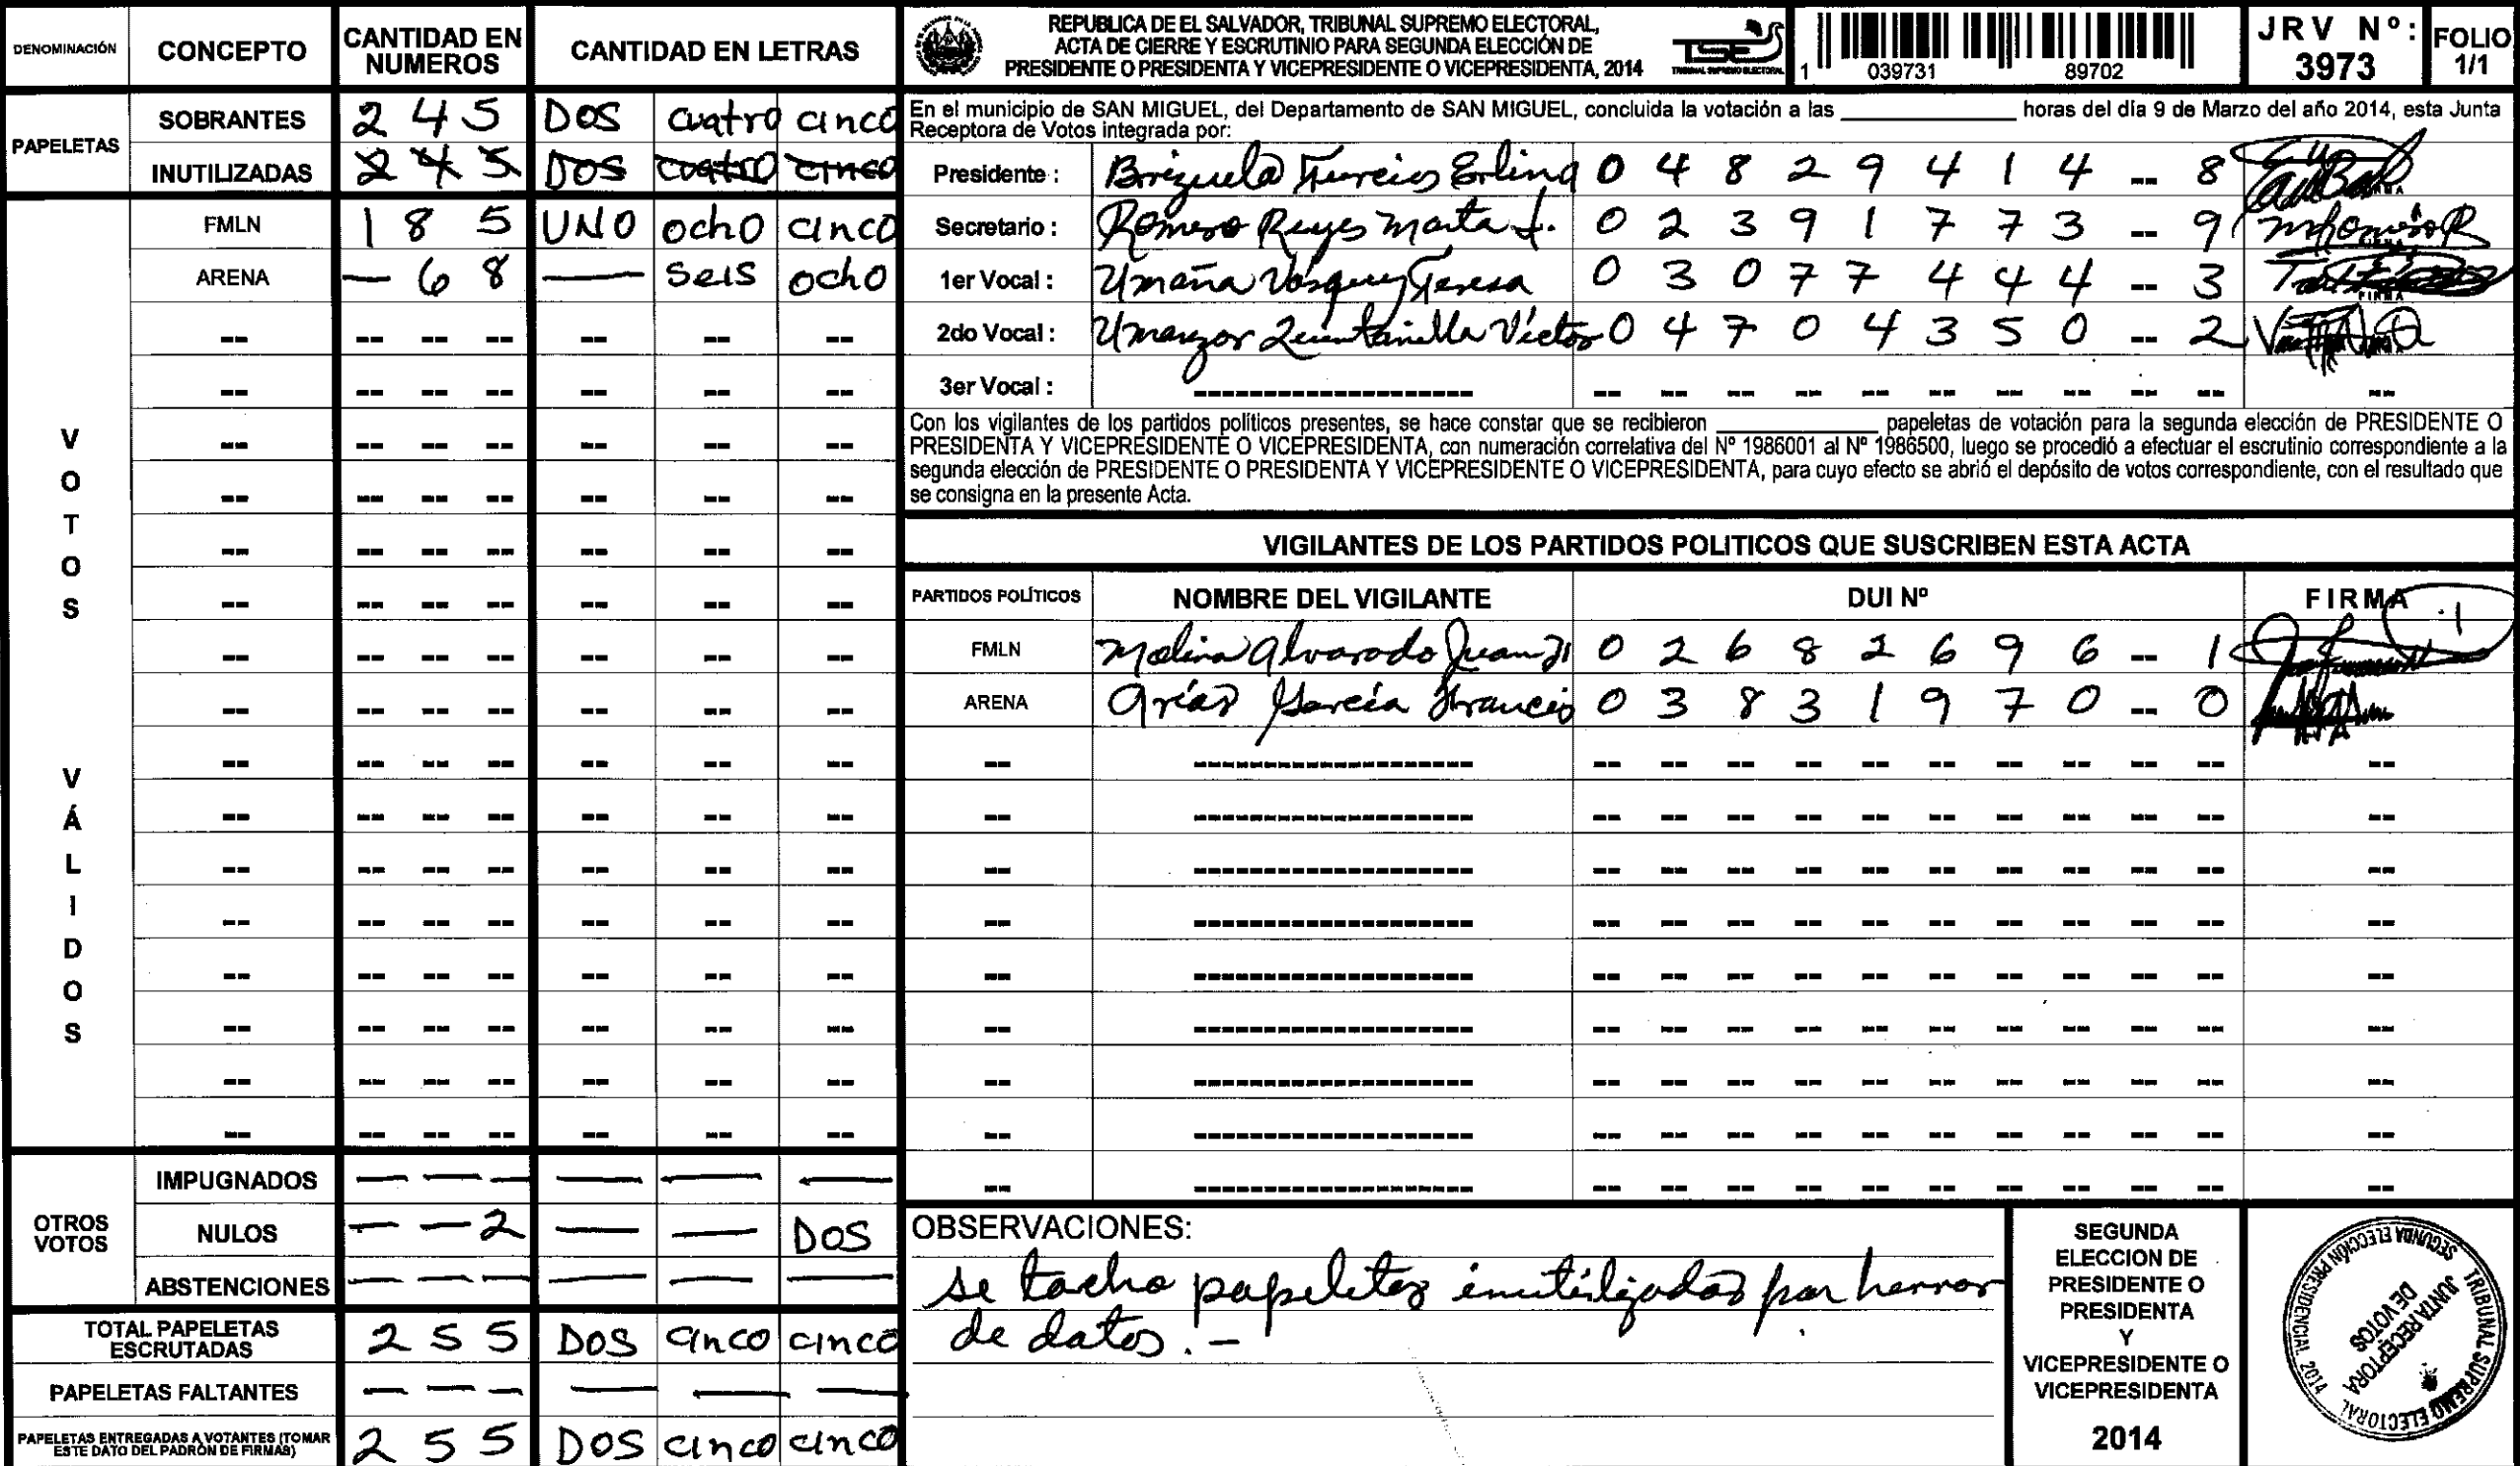 DENOMINACIÓN CONCEPTO CANTIDAD EN NUMEROS CANTIDAD EN LETRAS
PAPELETAS
SOBRANTES 2 4 5 DOS cuatro cinco
INUTILIZADAS 2 4 5 DOS cuatro cinco
VOTOS VÁLIDOS
FMLN 1 8 5 UNO ocho cinco
ARENA — 6 8 — seis ocho
OTROS VOTOS
IMPUGNADOS — — — — — —
NULOS — — 2 — — DOS
ABSTENCIONES — — — — — —
TOTAL PAPELETAS ESCRUTADAS 2 5 5 DOS cinco cinco
PAPELETAS FALTANTES — — — — — —
PAPELETAS ENTREGADAS A VOTANTES (TOMAR ESTE DATO DEL PADRÓN DE FIRMAS) 2 5 5 DOS cinco cinco
REPUBLICA DE EL SALVADOR, TRIBUNAL SUPREMO ELECTORAL,
ACTA DE CIERRE Y ESCRUTINIO PARA SEGUNDA ELECCIÓN DE
PRESIDENTE O PRESIDENTA Y VICEPRESIDENTE O VICEPRESIDENTA, 2014
TSE
TRIBUNAL SUPREMO ELECTORAL
1 039731 89702
JRV Nº: 3973
FOLIO 1/1
En el municipio de SAN MIGUEL, del Departamento de SAN MIGUEL, concluida la votación a las ____ horas del día 9 de Marzo del año 2014, esta Junta
Receptora de Votos integrada por:
Presidente : Brizuela Turcios Erlina 0 4 8 2 9 4 1 4 -- 8
Secretario : Romero Reyes Marta I. 0 2 3 9 1 7 7 3 -- 9
1er Vocal : Umaña Vásquez Teresa 0 3 0 7 7 4 4 4 -- 3
2do Vocal : Umanzor Quintanilla Víctor 0 4 7 0 4 3 5 0 -- 2
3er Vocal :
Con los vigilantes de los partidos políticos presentes, se hace constar que se recibieron ____ papeletas de votación para la segunda elección de PRESIDENTE O
PRESIDENTA Y VICEPRESIDENTE O VICEPRESIDENTA, con numeración correlativa del Nº 1986001 al Nº 1986500, luego se procedió a efectuar el escrutinio correspondiente a la
segunda elección de PRESIDENTE O PRESIDENTA Y VICEPRESIDENTE O VICEPRESIDENTA, para cuyo efecto se abrió el depósito de votos correspondiente, con el resultado que
se consigna en la presente Acta.
VIGILANTES DE LOS PARTIDOS POLITICOS QUE SUSCRIBEN ESTA ACTA
PARTIDOS POLÍTICOS NOMBRE DEL VIGILANTE DUI Nº FIRMA
FMLN Molina Alvarado Juan 0 2 6 8 2 6 9 6 -- 1
ARENA Arías García Francis 0 3 8 3 1 9 7 0 -- 0
OBSERVACIONES:
se tacho papeletas inutilizadas por herror
de datos. -
SEGUNDA
ELECCION DE
PRESIDENTE O
PRESIDENTA
Y
VICEPRESIDENTE O
VICEPRESIDENTA
2014
SEGUNDA ELECCIÓN PRESIDENCIAL 2014
TRIBUNAL SUPREMO ELECTORAL
JUNTA RECEPTORA
DE VOTOS